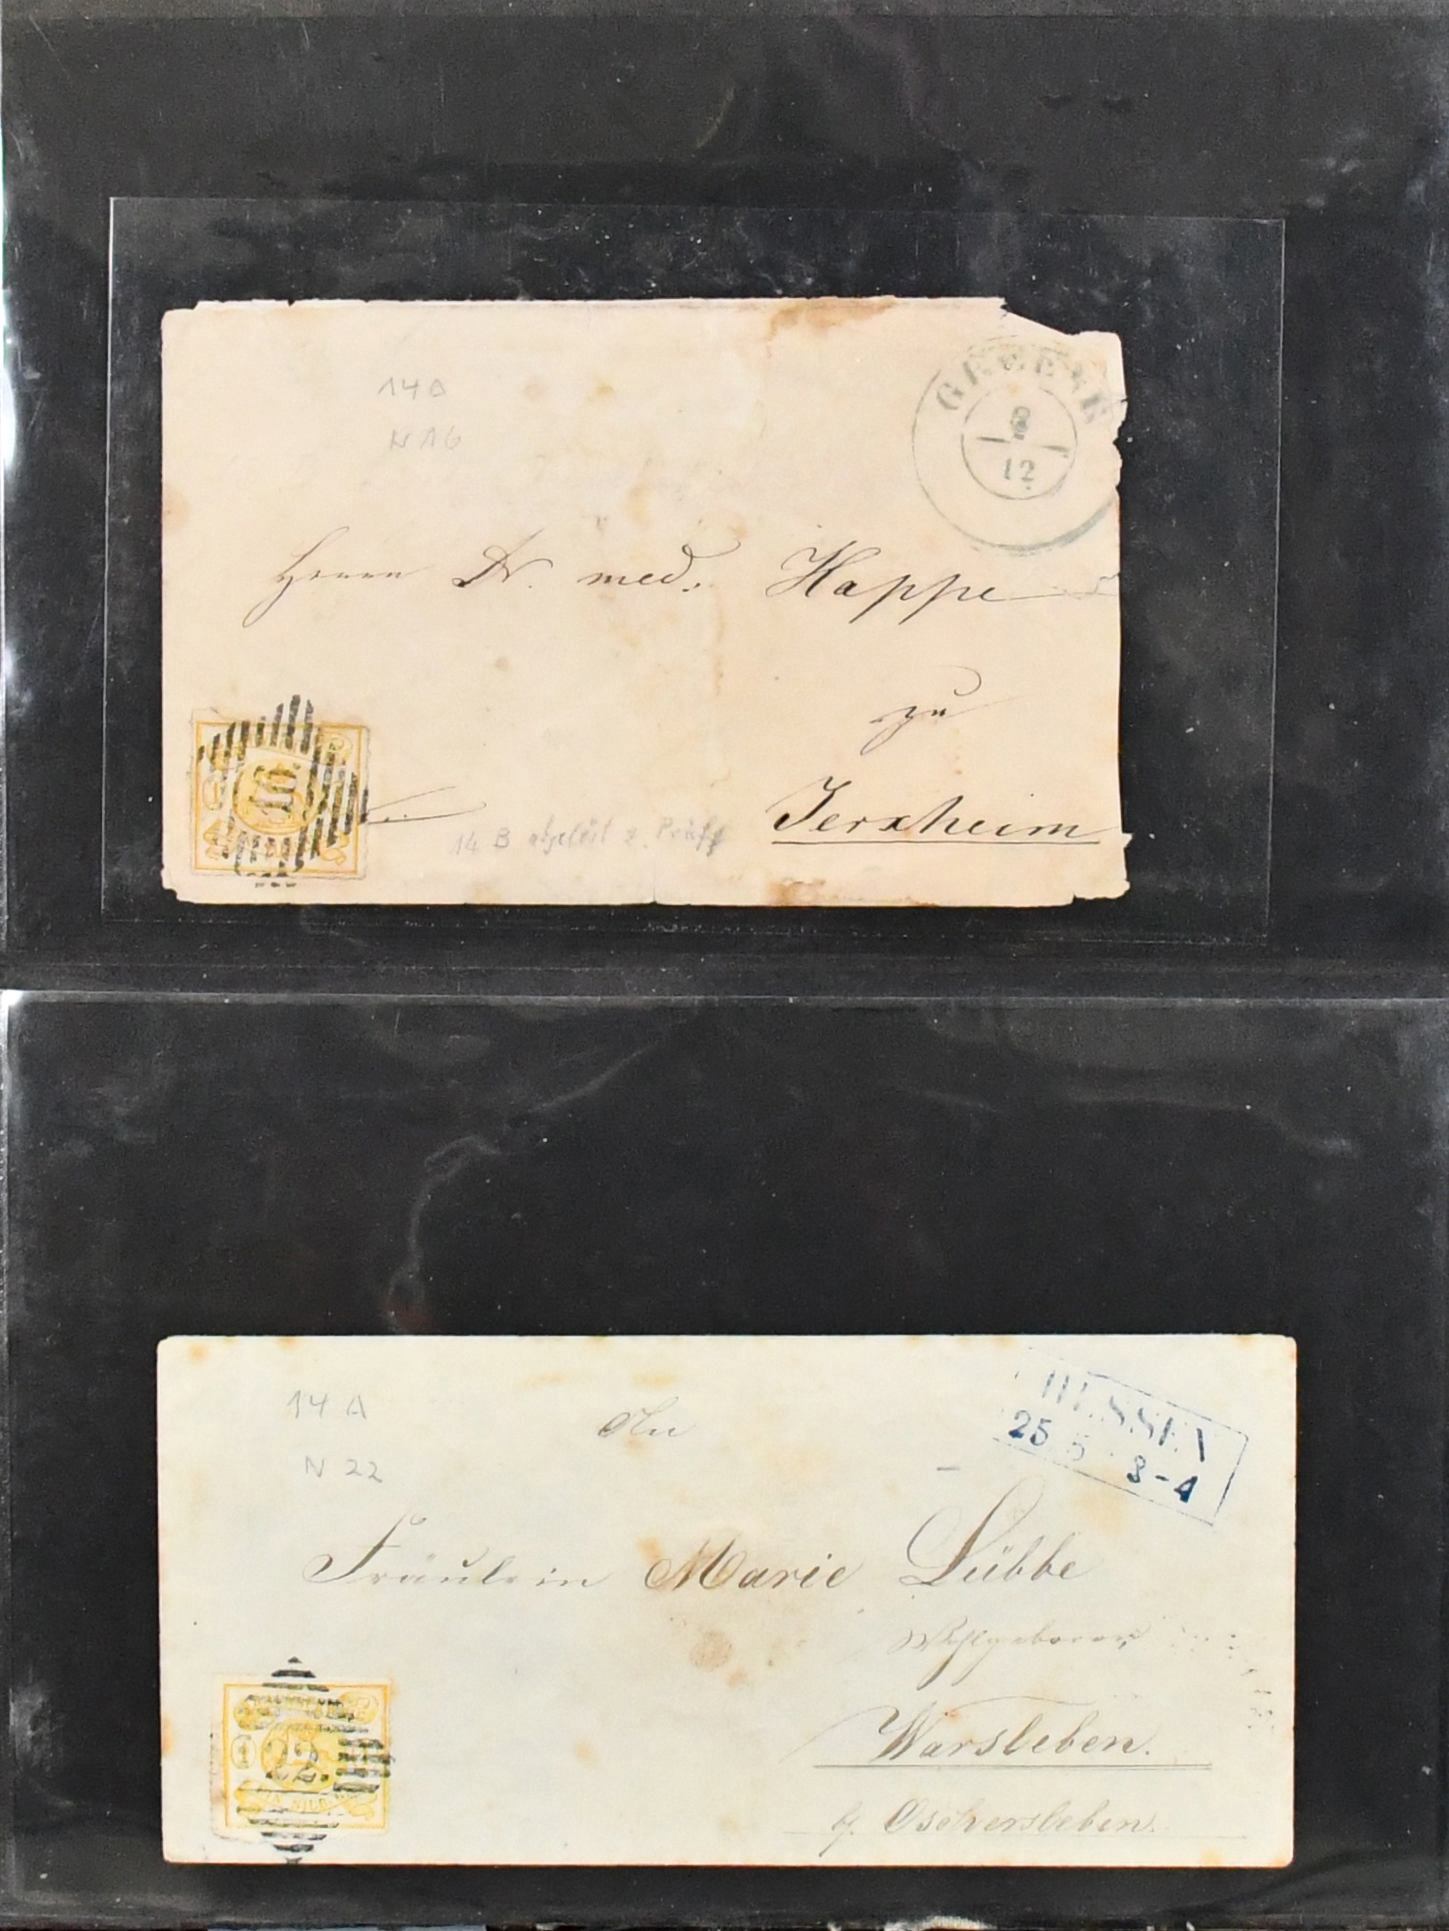 14 A
N 16
GREENE
8
12
Herrn Dr. med. Happe
zu
Jerxheim
14 B abgelöst z. Prüfg
14 A
N 22
An
HESSEN
25 5 3-4
Fräulein Marie Lübbe
Wohlgeboren
Warsleben.
b. Oschersleben.
1
22.